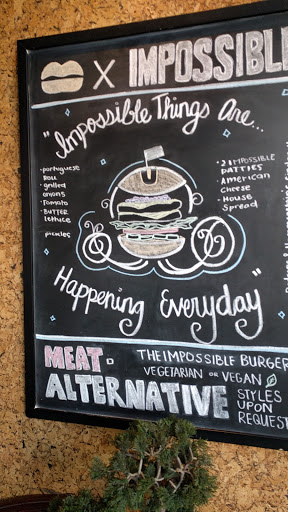 X IMPOSSIBLE
"Impossible Things Are...
• portuguese
Roll
• grilled
onions
• Tomato
• Butter
lettuce
• pickles
• 2 IMPOSSIBLE
patties
• American
Cheese
• House
Spread
Happening Everyday"
MEAT-
ALTERNATIVE
THE IMPOSSIBLE BURGER
VEGETARIAN OR VEGAN
STYLES
UPON
REQUEST